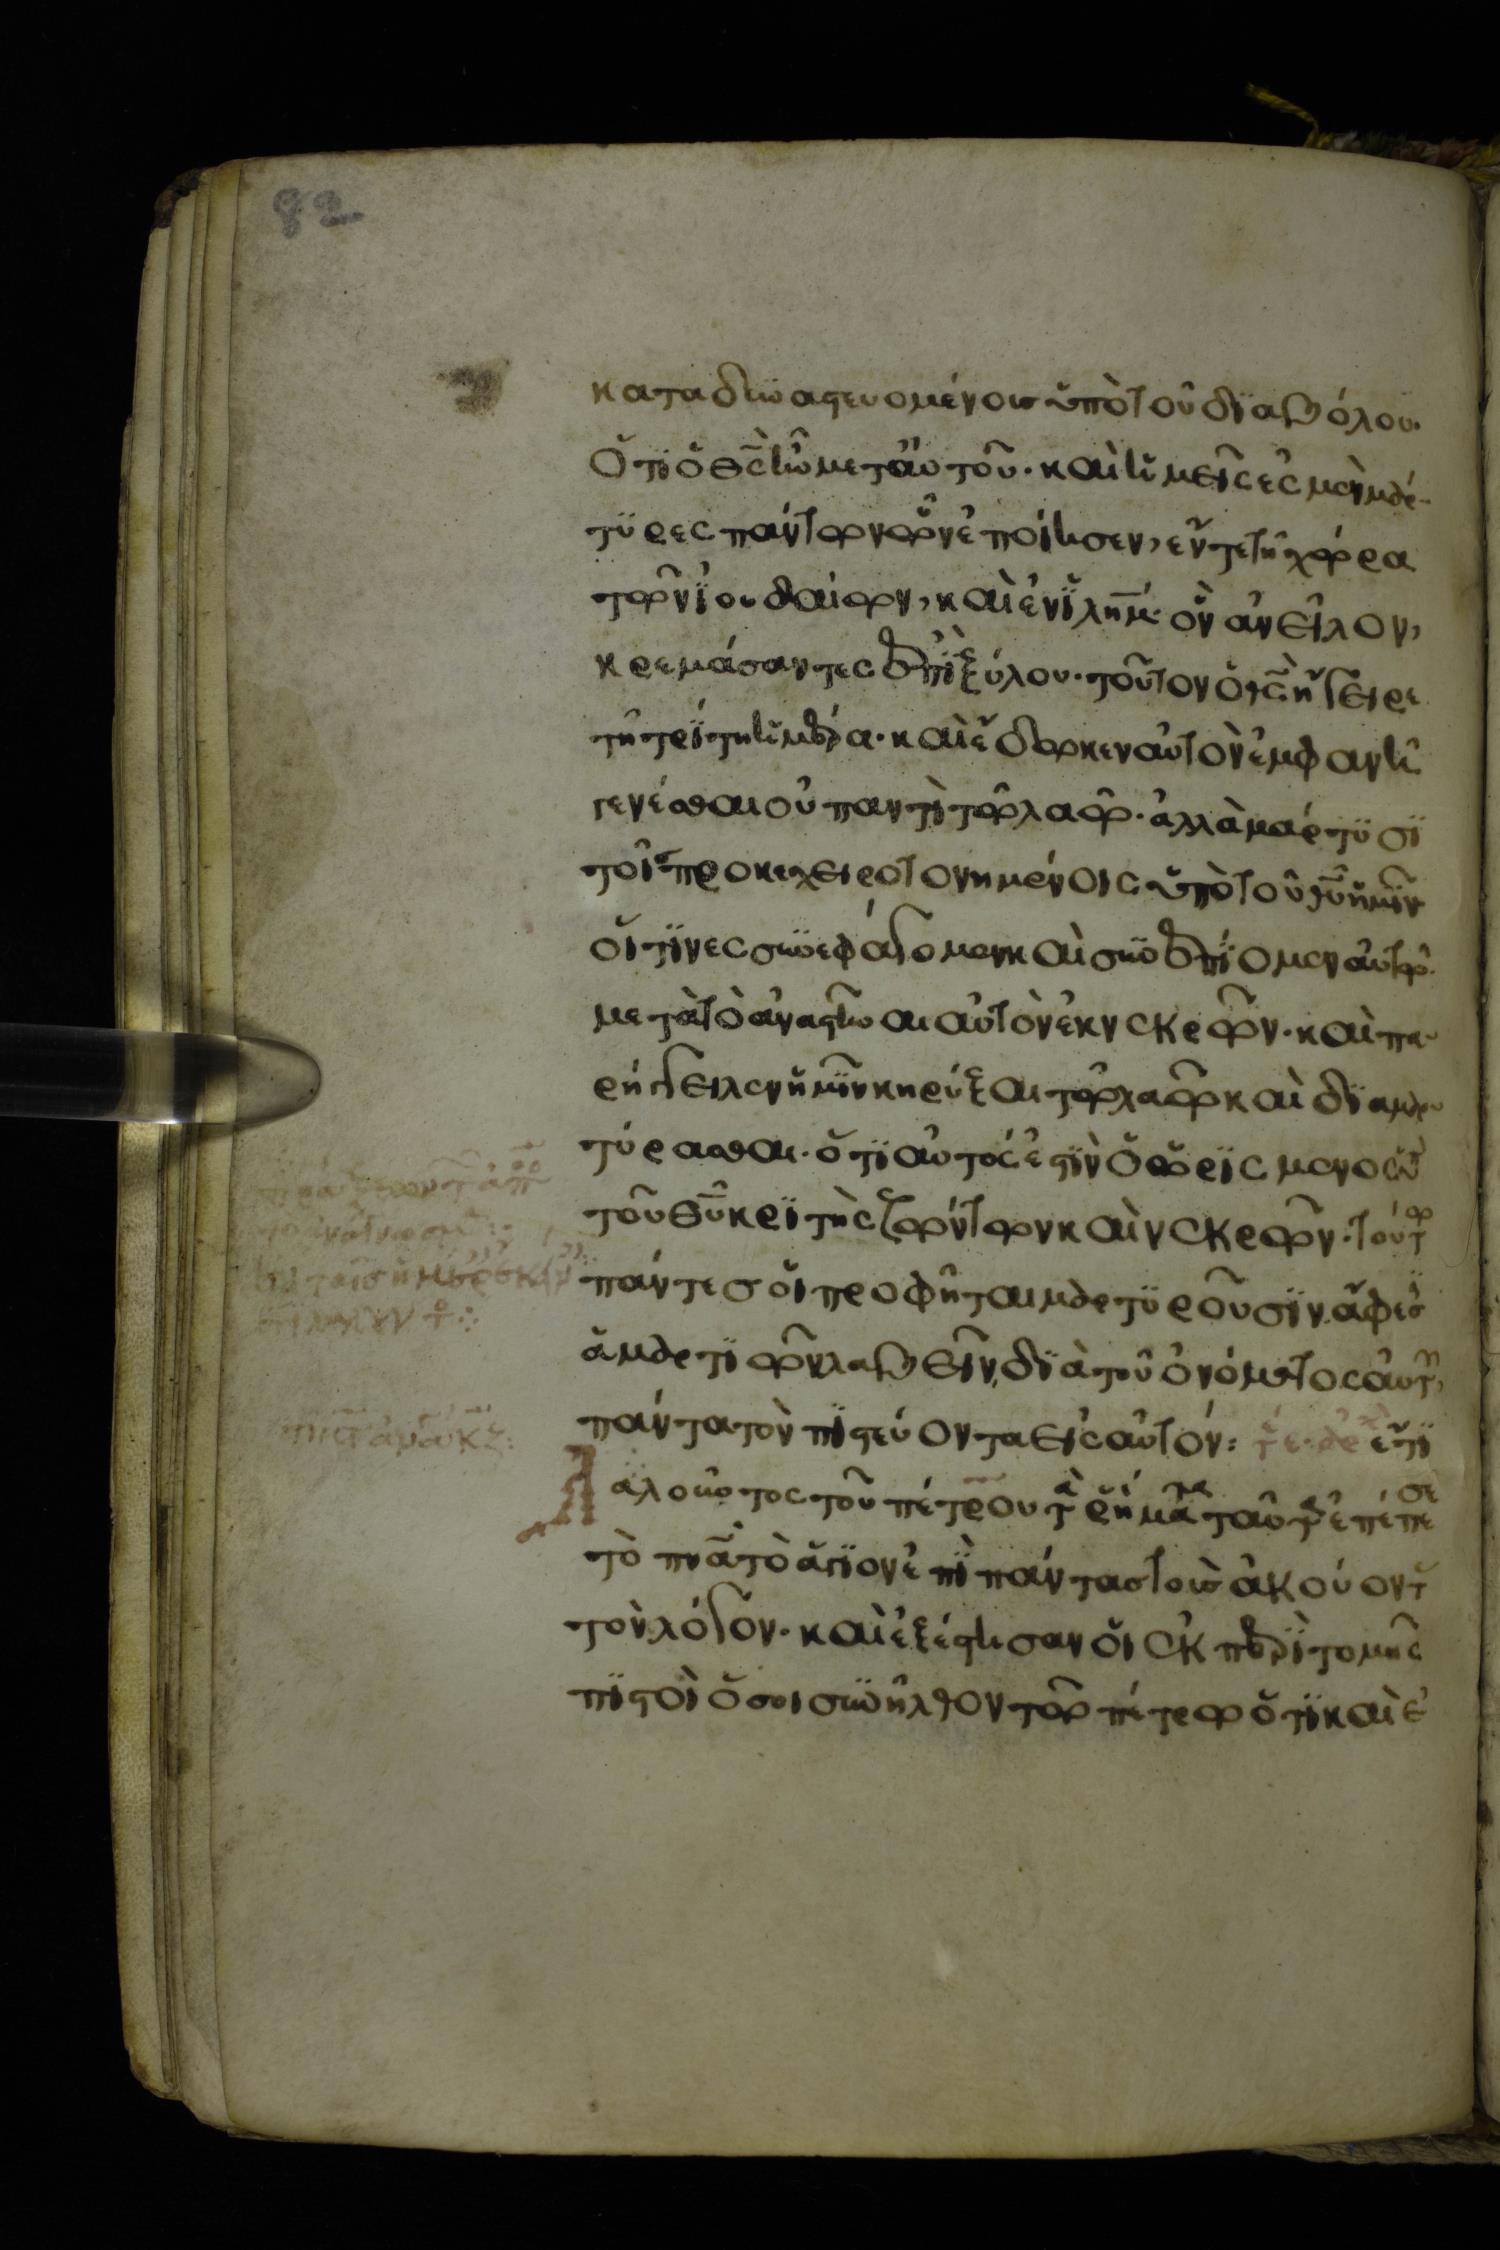 82
καταδυναστευομένους ὑπὸ τοῦ διαβόλου.
Ὅτι ὁ θς̄ ἦν μετ' αὐτοῦ. καὶ ἡμεῖς ἐσμὲν μάρ-
τυρες πάντων ὧν ἐποίησεν, ἔν τε τῆ χώρα
τῶν ἰουδαίων, καὶ ἐν ἰλῆμ. ὃν ἀνεῖλον,
κρεμάσαντες ἐπὶ ξύλου. τοῦτον ὁ θς̄ ἤγειρε
τῆ τρίτη ἡμέρα. καὶ ἔδωκεν αὐτὸν ἐμφανῆ
γενέσθαι οὐ παντὶ τῶ λαῶ. ἀλλὰ μάρτυσι
τοῖς προκεχειροτονημένοις ὑπὸ τοῦ θῡ ἡμῖν
οἵτινες συνεφάγομεν καὶ συνεπίομεν αὐτῶ.
μετὰ τὸ ἀναστῆναι αὐτὸν ἐκ νεκρῶν. καὶ πα-
ρήγγειλεν ἡμῖν κηρύξαι τῶ λαῶ καὶ διαμαρ-
τύρασθαι. ὅτι αὐτός ἐστιν ὁ ὡρισμένος ὑπὸ
τοῦ θῡ κριτὴς ζώντων καὶ νεκρῶν. τούτω
πάντες οἱ προφῆται μαρτυροῦσιν. ἄφεσι
ἁμαρτιῶν λαβεῖν, διὰ τοῦ ὀνόματος αὐτοῦ,
πάντα τὸν πιστεύοντα εἰς αὐτόν: ἔτι
λαλοῦντος τοῦ πέτρου τὰ ῥήματα ταῦτα ἐπέπεσε
τὸ πνᾱ τὸ ἅγιον ἐπὶ πάντας τοὺς ἀκούοντ
τὸν λόγον. καὶ ἐξέστησαν οἱ ἐκ περιτομῆς
πιστοὶ ὅσοι συνῆλθον τῶ πέτρω ὅτι καὶ ἐ